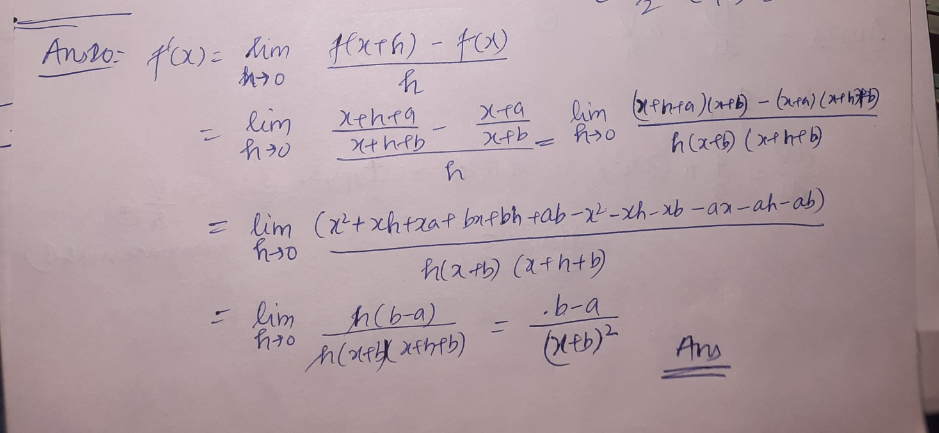 Ans20= f'(x) = lim h→0 (f(x+h) - f(x)) / h
= lim h→0 ((x+h+a)/(x+h+b) - (x+a)/(x+b)) / h = lim h→0 ((x+h+a)(x+b) - (x+a)(x+h+b)) / (h(x+b)(x+h+b))
= lim h→0 (x²+xh+xa+bx+bh+ab-x²-xh-xb-ax-ah-ab) / (h(x+b)(x+h+b))
= lim h→0 h(b-a) / (h(x+b)(x+h+b)) = b-a / (x+b)² Ans